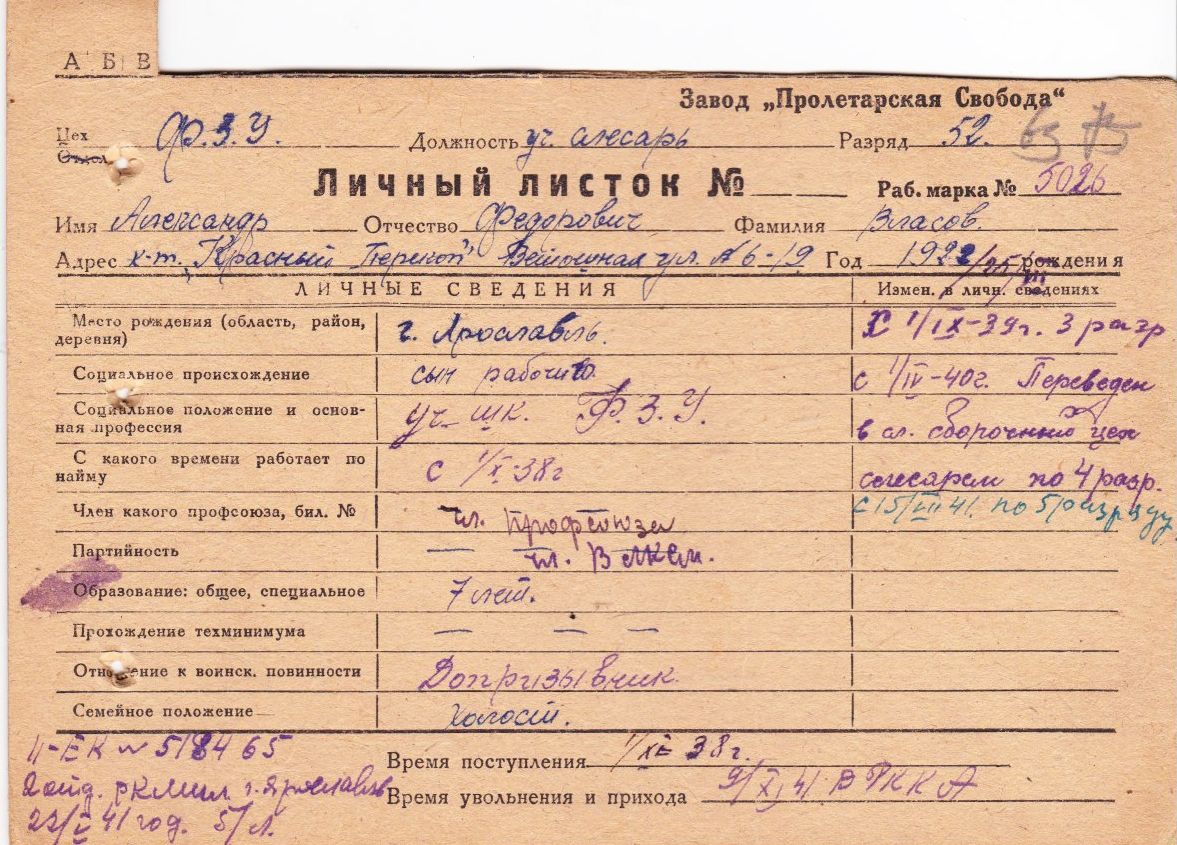 А Б В
Завод „Пролетарская Свобода“
Цех Отдел Ф.З.У. Должность уч. слесарь Разряд 52. 63 75
Личный листок № Раб. марка № 5026
Имя Александр Отчество Федорович Фамилия Власов.
Адрес к-т. „Красный Перекоп" Ветошная ул. 6-19 Год 192 рождения
ЛИЧНЫЕ СВЕДЕНИЯ Измен. в личн. сведениях
Место рождения (область, район, деревня) г. Ярославль. С 1/IX-39г. 3 разр
Социальное происхождение сын рабочего с 1/IV-40г. Переведен
Социальное положение и основная профессия уч. шк. Ф.З.У. в сл. сборочный цех
С какого времени работает по найму с 1/X-38г слесарем по 4 разр.
Член какого профсоюза, бил. № чл. Профсоюза с 15/ 41. по 5 разряду
Партийность — чл. ВЛКСМ.
Образование: общее, специальное 7 лет.
Прохождение техминимума — — —
Отношение к воинск. повинности Допризывник.
Семейное положение Холост.
II-ЕК № 518465
2 отд. РКМил г. Ярославль
22/ 41 год. 5/л.
Время поступления 1/XI-38г.
Время увольнения и прихода 9/XI 41 В РККА